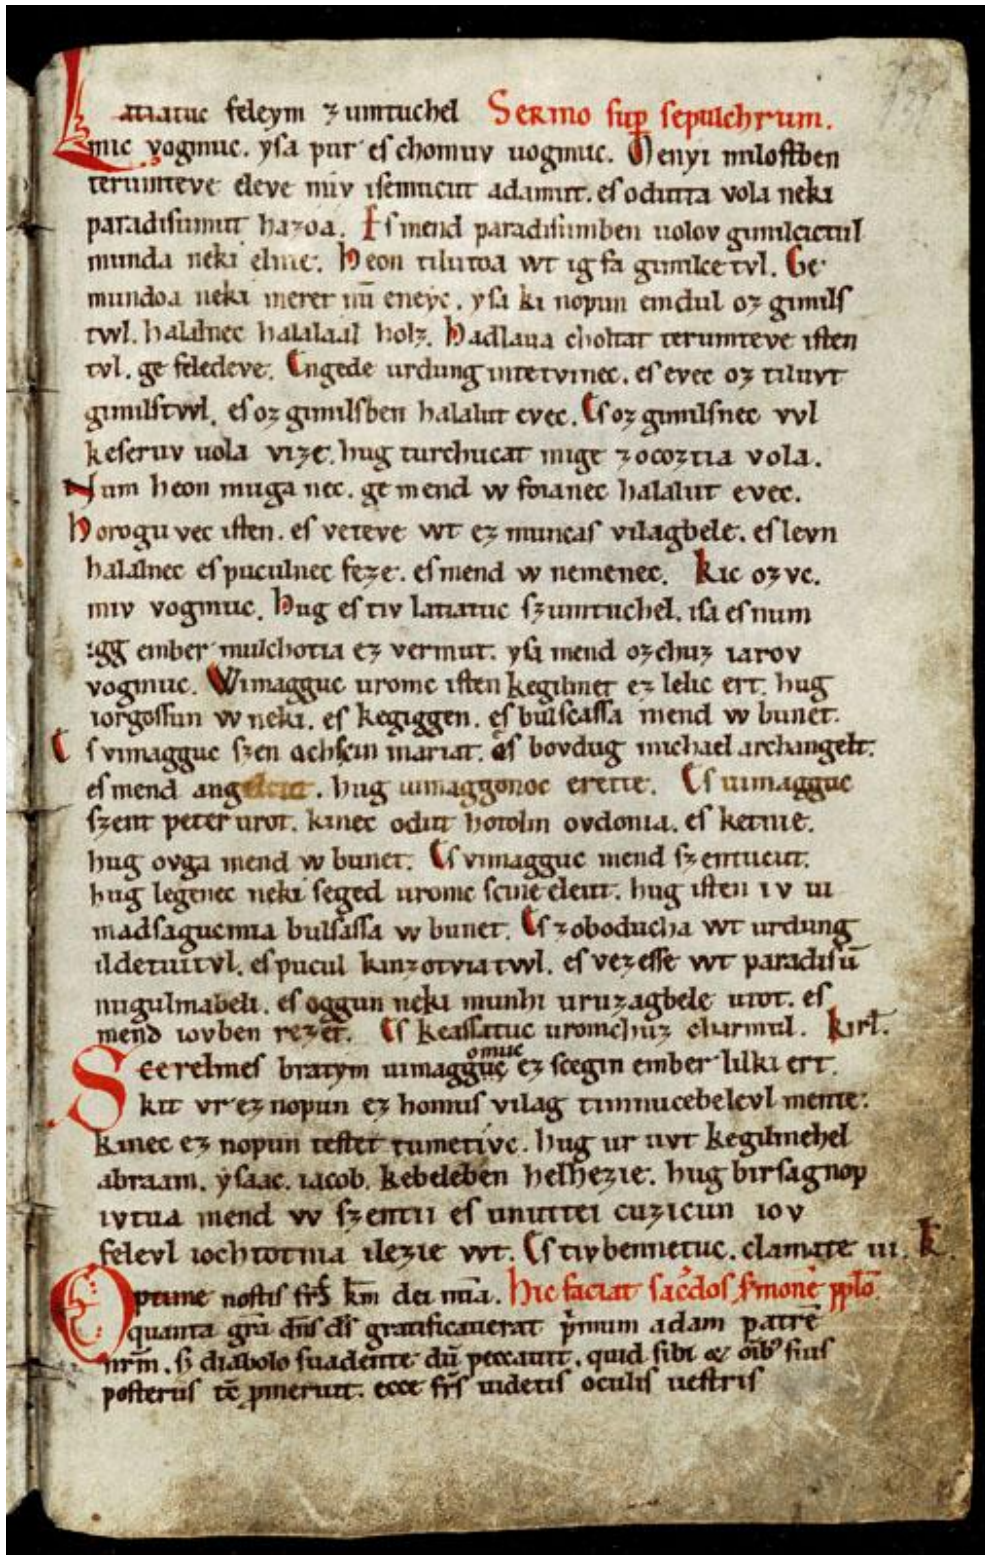 Latiatuc feleym zumtuchel Sermo sup sepulchrum.
mic vogmuc. ysa pur es chomuv uogmuc. Menyi milostben
terumteve eleve miv isemucut adamut. es odutta vola neki
paradisumut hazoa. Es mend paradisumben uolov gimilcictul
munda neki elnie. Heon tilutoa wt ig fa gimilce tvl. Ge
mundoa neki meret nū eneyc. ysa ki nopun emdul oz gimils
twl. halalnec halalaal holz. Hadlaua choltat terumteve isten
tvl. ge feledeve. Engede urdung intetvinec. es evec oz tiluvt
gimilstwl. es oz gimilsben halalut evec. Es oz gimilsnec vvl
keseruv uola vize. hug turchucat mige zocoztia vola.
Num heon muga nec. ge mend w foianec halalut evec.
Horogu vec isten. es veteve wt ez muncas vilagbele. es levn
halalnec es puculnec feze. es mend w nemenec. Kic ozvc.
miv vogmuc. Hug es tiv latiatuc szumtuchel. isa es num
igg ember mulchotia ez vermut. ysa mend ozchuz iarov
vogmuc. Wimagguc uromc isten kegilmet ez lelic ert. hug
iorgossun w neki. es kegiggen. es bulscassa mend w bunet.
Es vimagguc szen achscin mariat. es bovdug michael archangelt.
es mend angelcut. hug uimaggonoc erette. Es uimagguc
szent peter urot. kinec odut hotolm ovdonia. es ketnie.
hug ovga mend w bunet. Es vimagguc mend szentucut.
hug legenec neki seged uromc scine eleut. hug isten iv ui
madsagucmia bulsassa w bunet. Es zoboducha wt urdung
ildetuitvl. es pucul kinzotviatwl. es vezesse wt paradisū
nugulmabeli. es oggun neki munhi uruzagbele utot. es
mend iovben rezet. Es keassatuc uromchuz charmul. kirł.
Scerelmes bratym uimaggomuc ez scegin ember lilki ert.
kit vr ez nopun ez homus vilag timnucebelevl mente:
kinec ez nopun testet tumetivc. hug ur uvt kegilmehel
abraam. ysaac. iacob. kebeleben helhezie. hug birsagnop
ivtua mend vv szentii es unuttei cuzicun iov
felevl iochtotnia ilezie vvt. Es tiv bennetuc. clamate iii. k.
Optime nostis frs km dei mīa. Hic faciat sac̄dos s̄monē pp̄lo.
quanta grā dn̄s ds̄ gratificauerat p̄mum adam patrē
nrm̄. s; diabolo suadente dū peccauit. quid sibi & oīb; suis
posteris tc̄ pmeruit. ecce frs uidetis oculis uestris